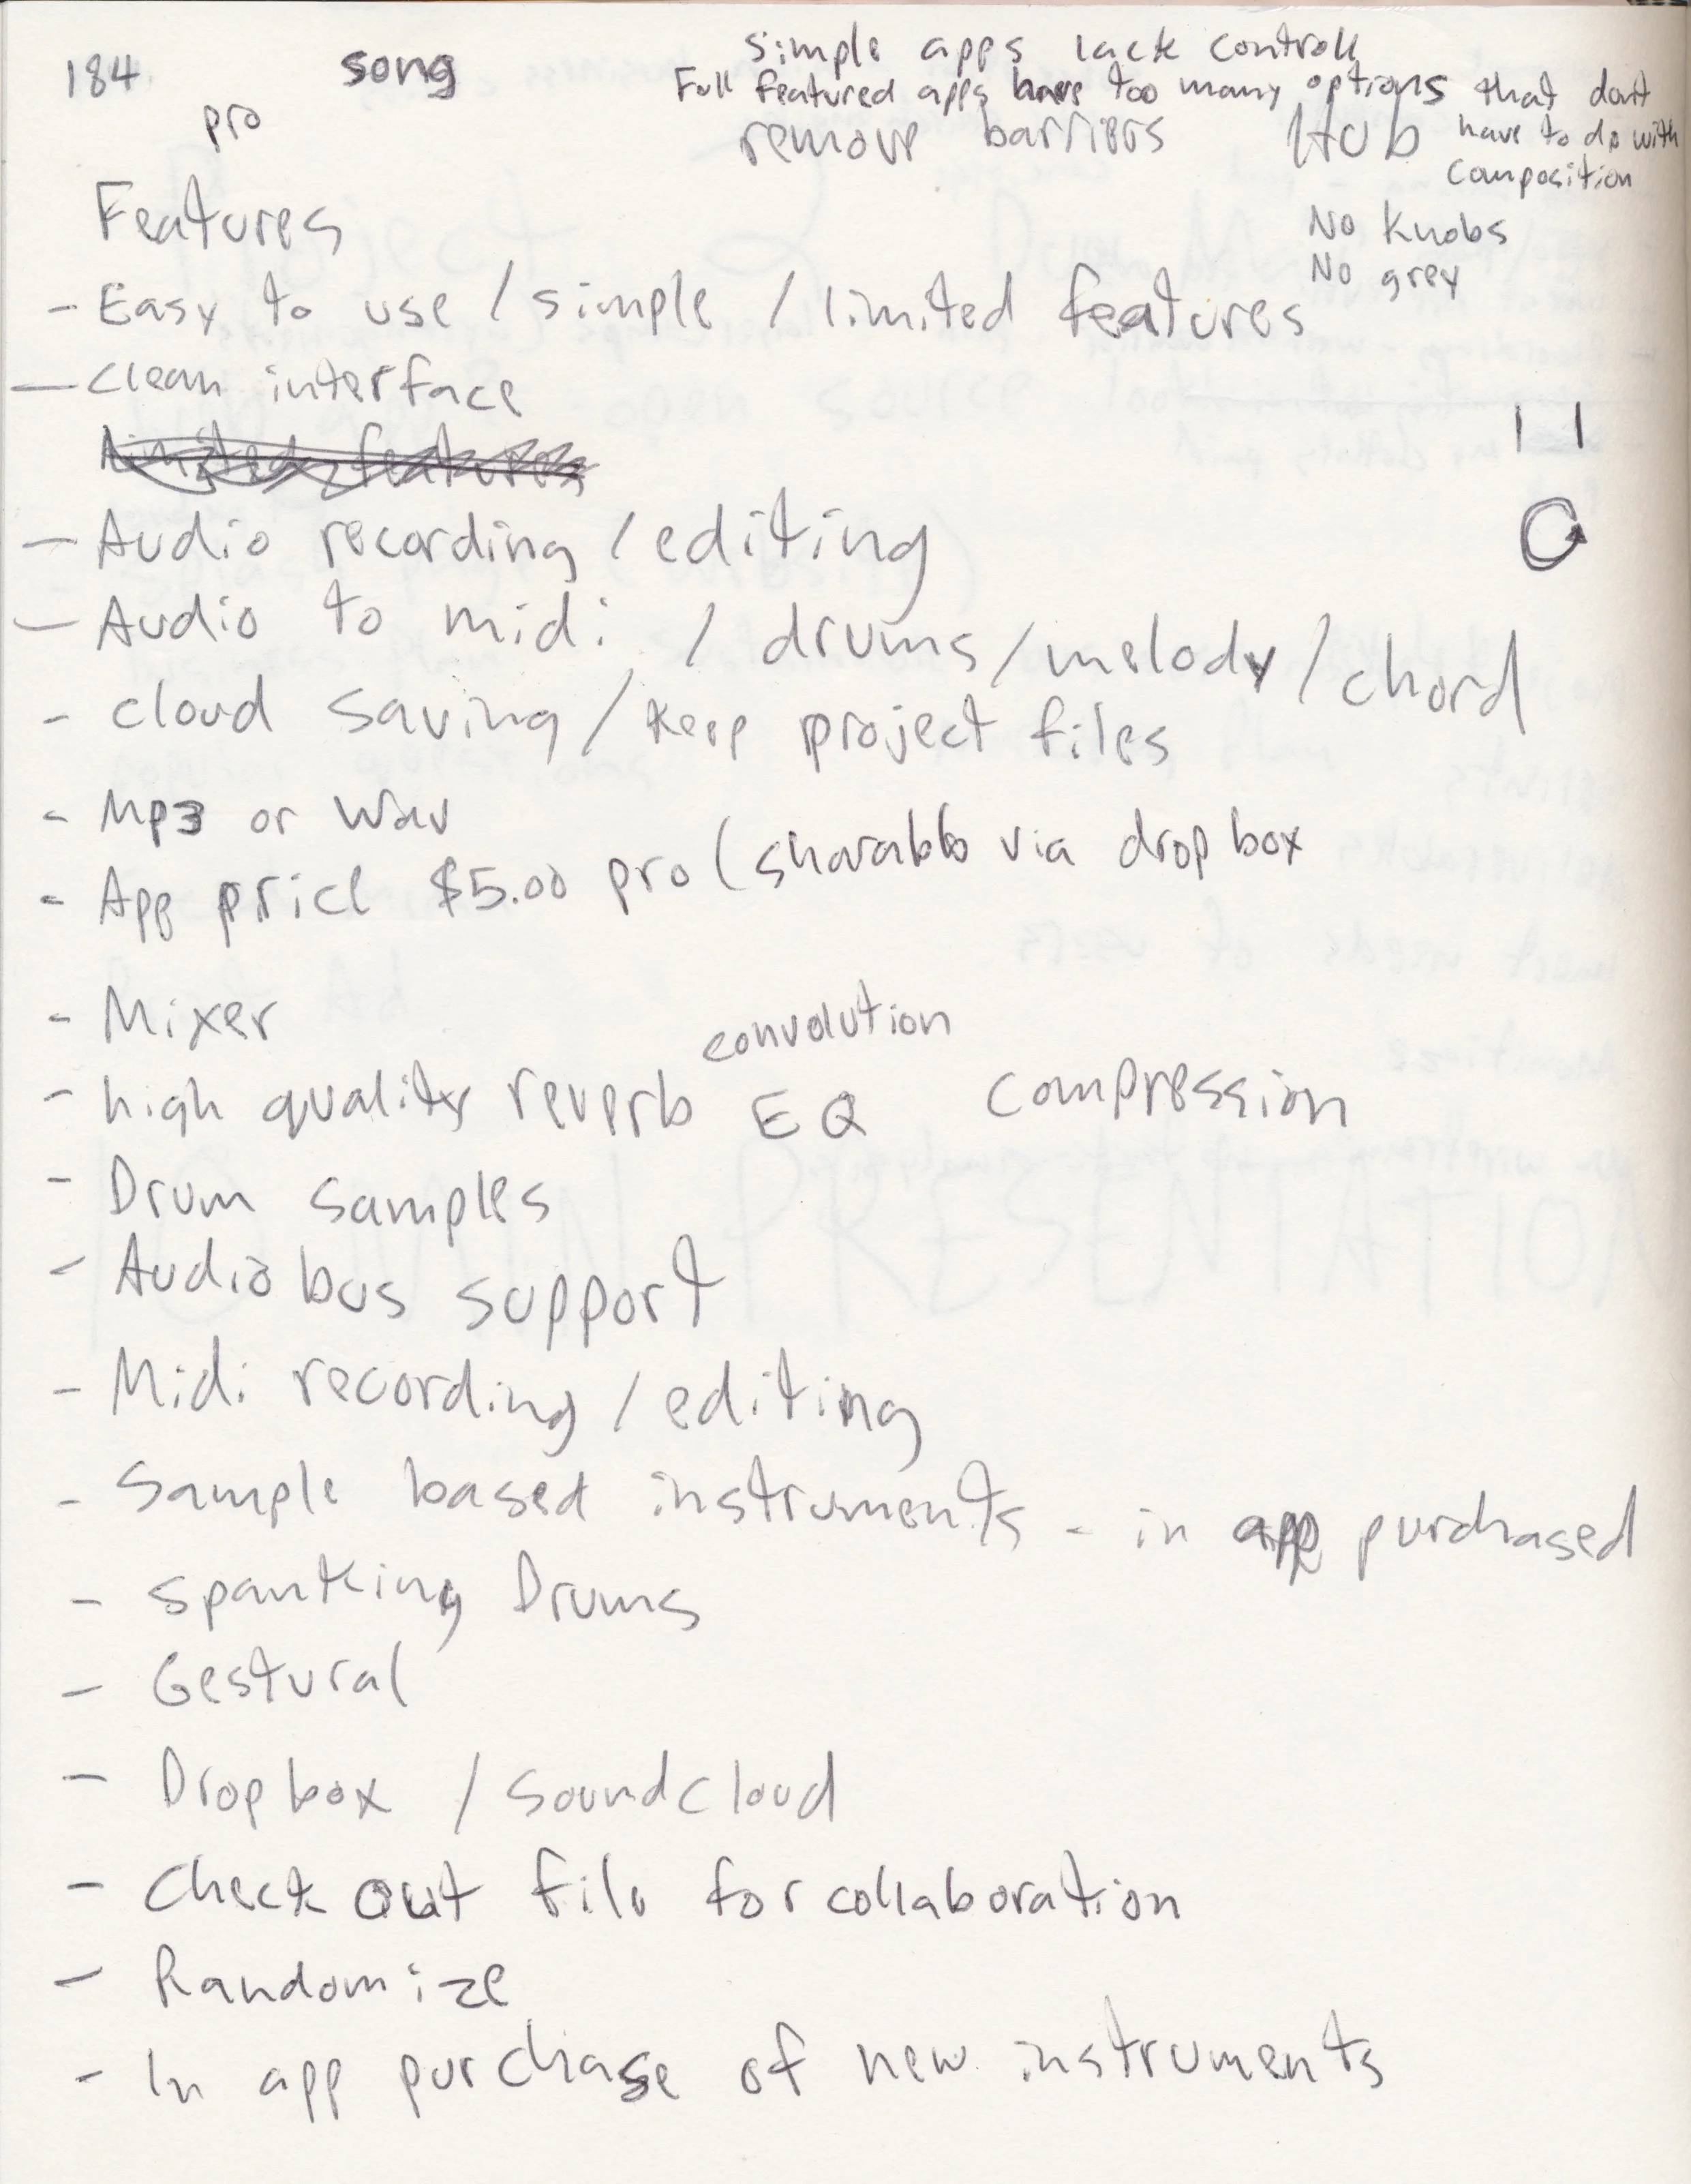 184
song
pro
simple apps lack controll
Full featured apps have too many options that dont
have to do with
composition
remove barriers
HUB
No knobs
No grey
Features
- Easy to use / simple / limited features
- clean interface
limited features
- Audio recording / editing
- Audio to midi / drums / melody / chord
- cloud saving / keep project files
- Mp3 or Wav
- App price $5.00 pro ( sharable via dropbox
- Mixer
convolution
- high quality reverb EQ compression
- Drum samples
- Audiobus support
- Midi recording / editing
- Sample based instruments - in app purchased
- spanking Drums
- Gestural
- Dropbox / soundcloud
- Check out file for collaboration
- Randomize
- In app purchase of new instruments